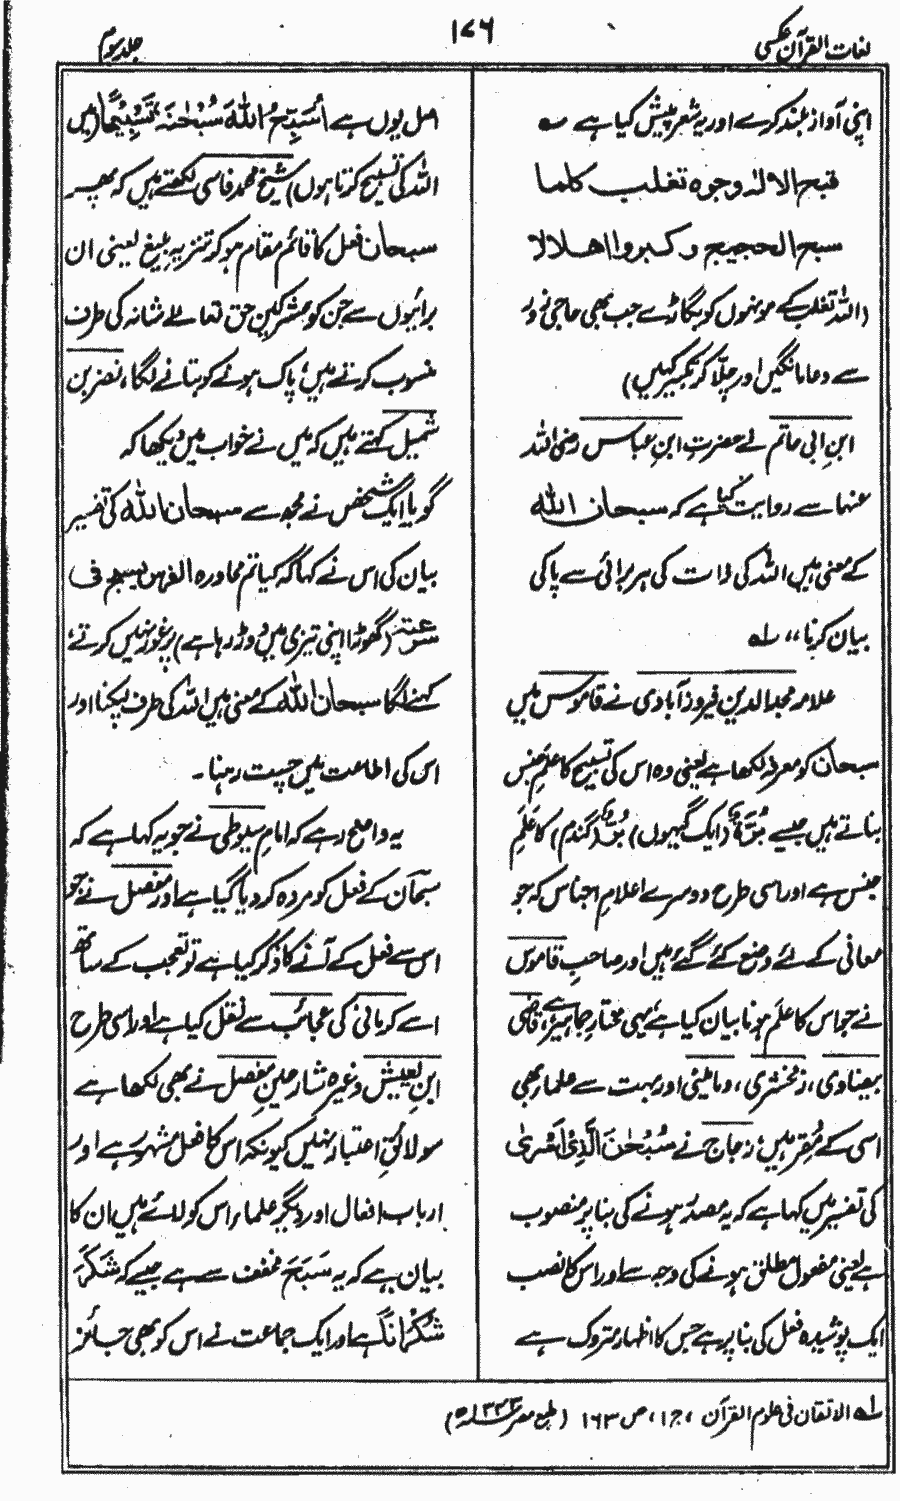 لغات القرآن عکسی
۱۷۶
جلد سوم
اپنی آواز بلند کرے اور یہ شعر پیش کیا ہے ؎
قبح الالٰہ وجوہ تغلب کلما
سبح الحجیج و کبروا اھلالا
(اللہ تغلب کے مونہوں کو بگاڑے جب بھی حاجی زور
سے دعا مانگیں اور چلّا کر تکبیر کہیں)
ابن ابی حاتم نے حضرت ابن عباس رضی اللہ
عنہما سے روایت کیا ہے کہ سبحان اللہ
کے معنی ہیں اللہ کی ذات کی ہر برائی سے پاکی
بیان کرنا،، لہ
علامہ مجد الدین فیروز آبادی نے قاموس میں
سبحان کو معرفہ لکھا ہے یعنی وہ اس کی تسبیح کا علم جنس
بتاتے ہیں جیسے بُرَّةٌ (ایک گیہوں) بُرٌّ (گندم) کا عَلَمِ
جنس ہے اور اسی طرح دوسرے اعلام اجناس کہ جو
معانی کے لئے وضع کئے گئے ہیں اور صاحبِ قاموس
نے جو اس کا علَم ہونا بیان کیا ہے یہی مختار جماہیر ہے، قاضی
بیضاوی، زمخشری، دمامینی اور بہت سے علماء بھی
اسی کے مُقر ہیں، زجاج نے سُبْحٰنَ الَّذِیْ اَسْرٰی
کی تفسیر میں کہا ہے کہ یہ مصدر ہونے کی بنا پر منصوب
ہے یعنی مفعول مطلق ہونے کی وجہ سے اور اس کا نصب
ایک پوشیدہ فعل کی بنا پر ہے جس کا اظہار متروک ہے
اصل یوں ہے اُسَبِّحُ اللّٰہَ سُبْحٰنَہٗ تَسْبِیْحًا (میں
اللہ کی تسبیح کرتا ہوں) شیخ محمد فاسی لکھتے ہیں کہ پھر
سبحان فعل کا قائم مقام ہو کر تنزیہ بلیغ یعنی ان
برائیوں سے جن کو مشرکین حق تعالےٰ شانہ کی طرف
منسوب کرتے ہیں، پاک ہونے کو بتانے لگا، نضر بن
شمیل کہتے ہیں کہ میں نے خواب میں دیکھا کہ
گویا ایک شخص نے مجھ سے سبحان اللہ کی تفسیر
بیان کی اس نے کہا کہ کیا تم محاورہ الفرس یسبح فی
سرعتہ (گھوڑا اپنی تیزی میں دوڑ رہا ہے) پر غور نہیں کرتے،
کہنے لگا سبحان اللہ کے معنی ہیں اللہ کی طرف لپکنا اور
اس کی اطاعت میں چست رہنا۔
یہ واضح رہے کہ امام سیوطی نے جو یہ کہا ہے کہ
سبحان کے فعل کو مردہ کر دیا گیا ہے اور مفصل نے جو
اس سے فعل کے آنے کا ذکر کیا ہے تو تعجب کے ساتھ
اسے کرمانی کی عجائب سے نقل کیا ہے اور اسی طرح
ابن یعیش وغیرہ شارحین مفصل نے بھی لکھا ہے
سو لائقِ اعتبار نہیں کیونکہ اس کا فعل مشہور ہے اور
ارباب افعال اور دیگر علماء اس کو لائے ہیں ان کا
بیان ہے کہ یہ سَبَحَ مخفف سے ہے جیسے کہ شَکَرَ
شُکْرَانًا ہے اور ایک جماعت نے اس کو بھی جائز
لہ الاتقان فی علوم القرآن ، ج۱، ص ۱۶۳ (طبع مصر ۱۳۴۳ھ)